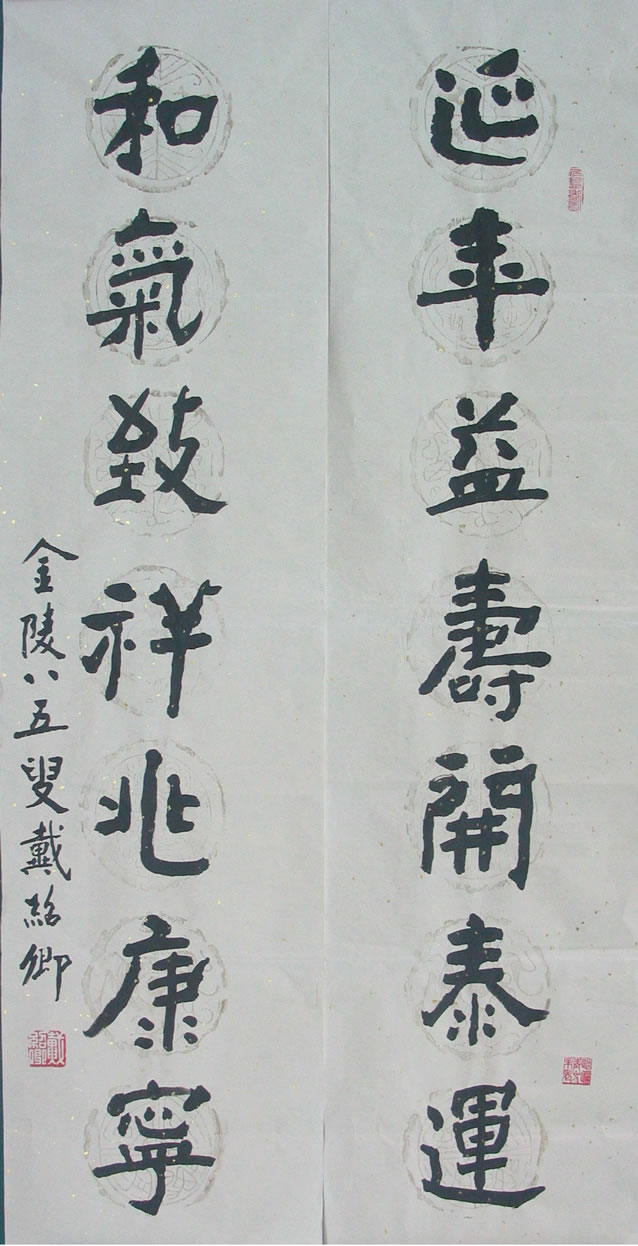 延年益壽開泰運
和氣致祥兆康寧
金陵八五叟戴紹卿
戴紹卿